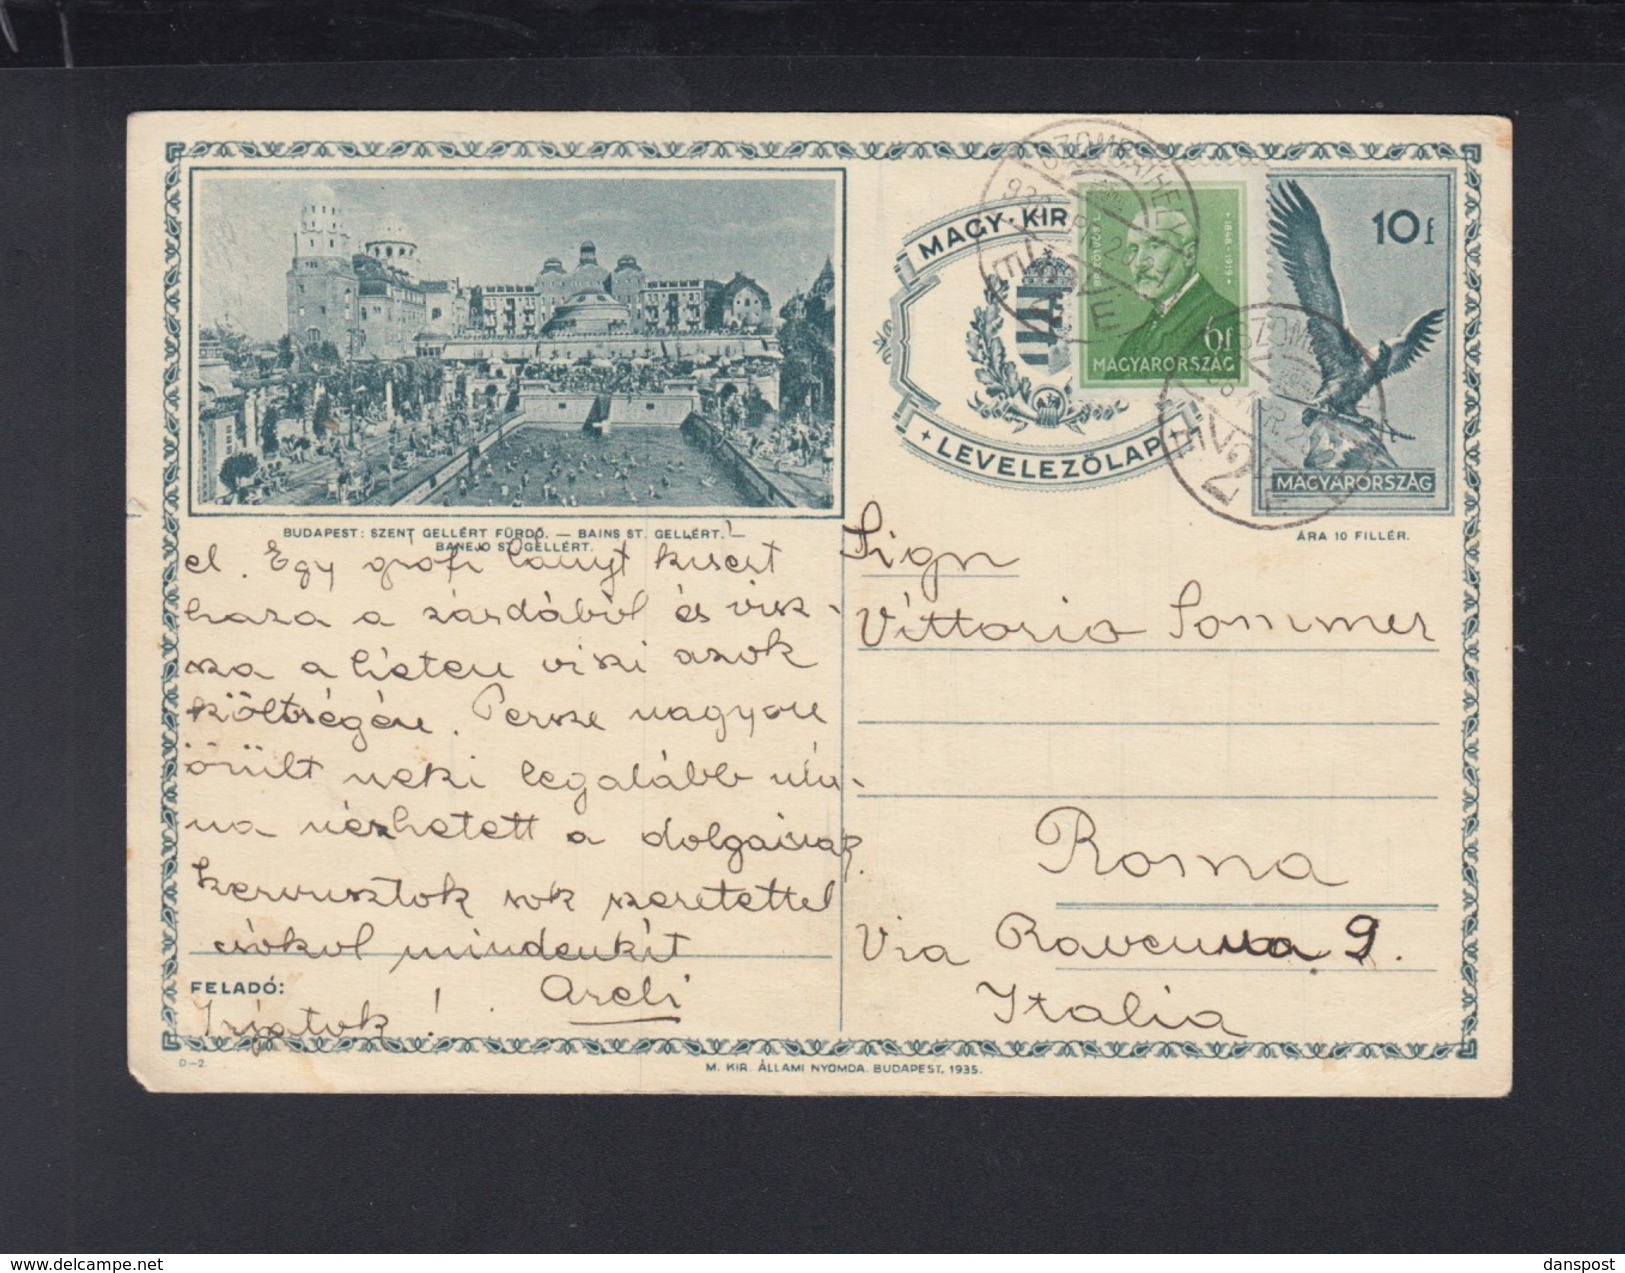 MAGY. KIR.
LEVELEZŐLAP
SZOMBATHELY
6f
MAGYARORSZÁG
10f
MAGYARORSZÁG
ÁRA 10 FILLÉR.
BUDAPEST: SZENT GELLÉRT FÜRDŐ. — BAINS ST. GELLÉRT. —
BANEJO ST. GELLÉRT.
el. Egy grófi lányt kisért
haza a zárdából és visz-
sza a héten viszi azok
költségén. Persze nagyon
örült neki legalább utá-
na nézhetett a dolgainak
sok szeretettel
csókol mindenkit
FELADÓ:
Irjatok!
Sign
Vittorio Sommer
Roma
Via Ravenna 9.
Italia
D-2.
M. KIR. ÁLLAMI NYOMDA. BUDAPEST, 1935.
danspost